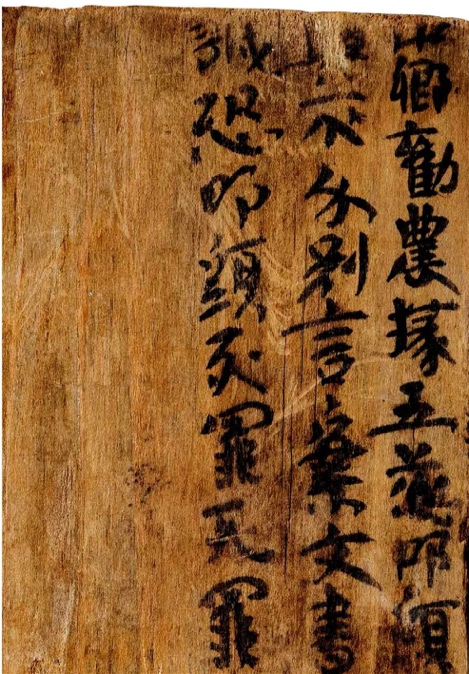 鄉勸農掾五叩頭
分別言案文書
誠恐叩頭死罪死罪